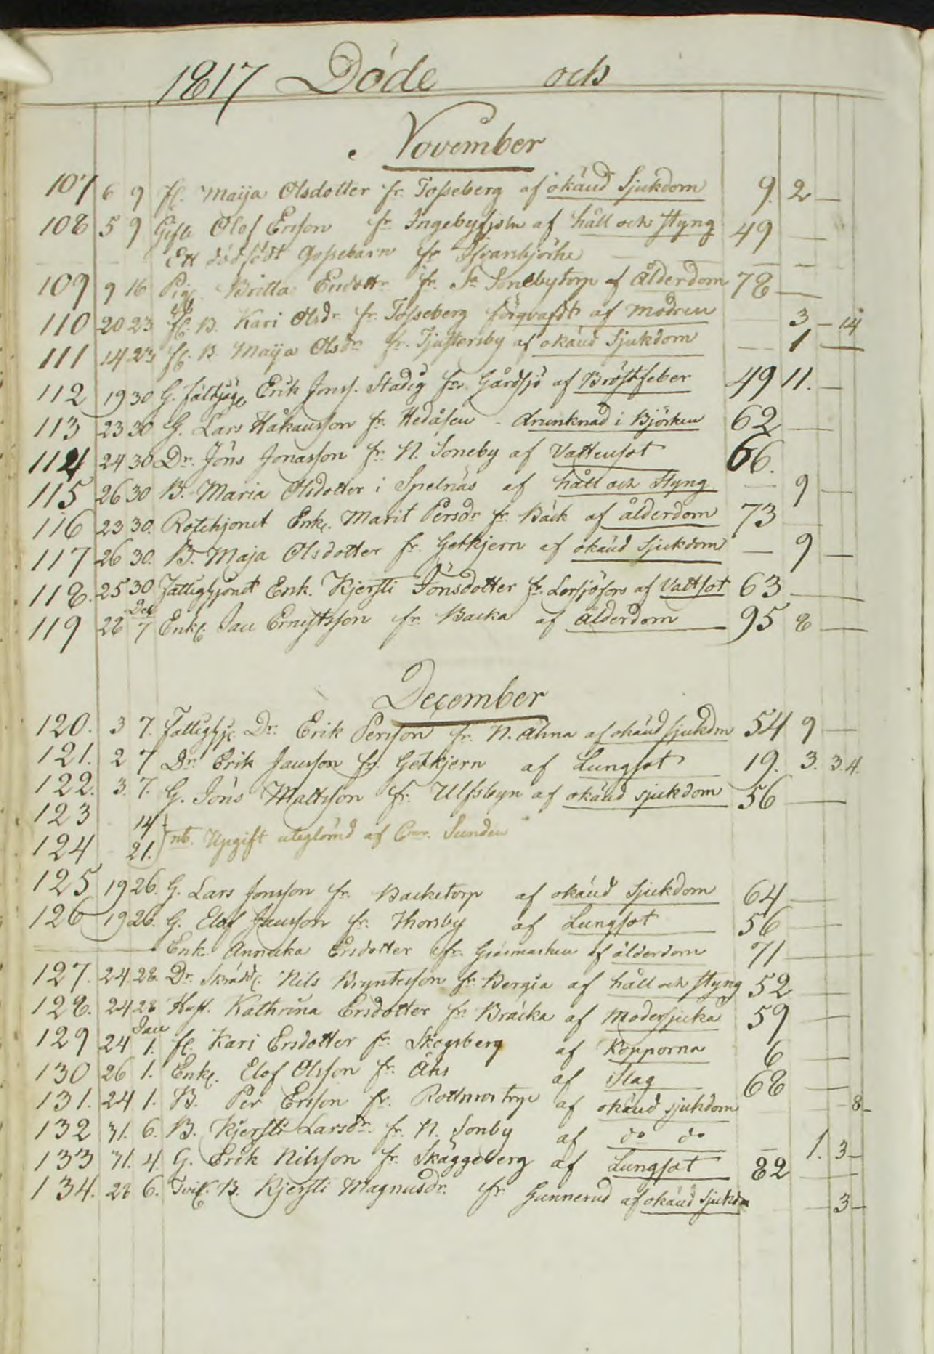 1817 Döde och
November
107 6 9 fl. Maija Olsdotter fr. Tosseberg af okänd Sjukdom 9. 2 —
108 5 9 Gift Olof Ersson fr. Ingebyfjoln af håll och styng 49 —
Ett dödfödt gossebarn fr —
109 9 16 Pig. Britta Ersdottr fr. S. Sonebytorp af Ålderdom 78 —
110 20 23 fl. B. Kari Olsdr fr. Tosseberg förqvafdt af modren — 3 — 14
111 14 23 fl. B. Maija Olsdr fr. Tjustersby af okänd Sjukdom — 1 —
112 19 30 G. Erik Jonss. Stadig fr. Gårdsjö af Bröstfeber 49 11. —
113 23 30 G. Lars Håkansson fr. Hedåsen - drunknad i Björken 62 —
114 24 30 Dr. Jöns Jonasson fr. N. Soneby af Vattensot 66.
115 26 30 B. Maria Olsdotter i Spelnäs af håll och Styng — 9 —
116 23 30. Rotehjonet Enk. Marit Persdr fr. Bäck af ålderdom 73 —
117 26 30. B. Maja Olsdotter fr. Getkjern af okänd Sjukdom — 9 —
118. 25 30 Fattighjonet Enk. Kjersti Jönsdotter fr. Lersjöfors af Vattsot 63 —
Dec
119 28 7 Enkl. Jan Ernstsson fr. Backa af Ålderdom 95 8 —
December
120. 3 7. Fattighj. Dr. Erik Persson fr. N. Åhna af okänd sjukdm 54 9 —
121. 2 7 Dr. Erik Jansson fr. Getkjern af Lungsot 19. 3. 34.
122. 3. 7. G. Jöns Mattsson fr. Ulfsbyn af okänd sjukdom 56 —
123 14
124 21. nb. Upgift uteglömd af Sundén
125 19 26. G. Lars Jonsson fr. Backetorp af okänd Sjukdom 64 —
126 19 26 G. Elof Jansson fr. Thorsby af Lungsot 56 —
Enk. Annika Ersdotter fr. af ålderdom 71 —
127. 24. 28. Dr. Nils Bryntesson fr. Bergia af håll och styng 52 —
128. 24 28 Hust. Kathrina Ersdotter fr. Bräcka af Modersjuka 59 —
Jan
129 24 1. fl. Kari Ersdotter fr. Skogsberg af Kopporna 6 —
130 26 1. Enkl. Elof Olsson fr. Åhs af Slag 68 —
131. 24 1. B. Per Ersson fr. af okänd sjukdom — 8 —
132 31. 6. B. Kjersti Larsdr. fr. N. Sonby af do do — 1. 3 —
133 31. 4. G. Erik Nilsson fr. Skäggeberg af Lungsot 82 —
134. 28 6. Tvil. B. Kjersti Magnusdr. fr Gunnerud af okänd Sjukdm — 3 —